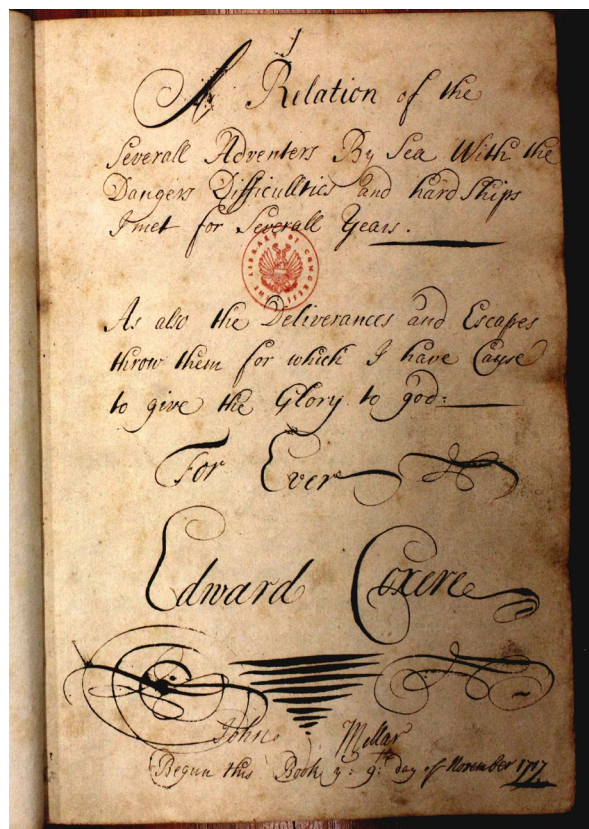 1
A Relation of the
Severall Adventers By Sea With the
Dangers Difficullties and hard Ships
I met for Severall Years.
THE LIBRARY OF CONGRESS
As also the Deliverances and Escapes
throw them for which I have Cause
to give the Glory to god:
For Ever
Edward Coxere
John Millar
Begun this Book y: 9: day of November 1717